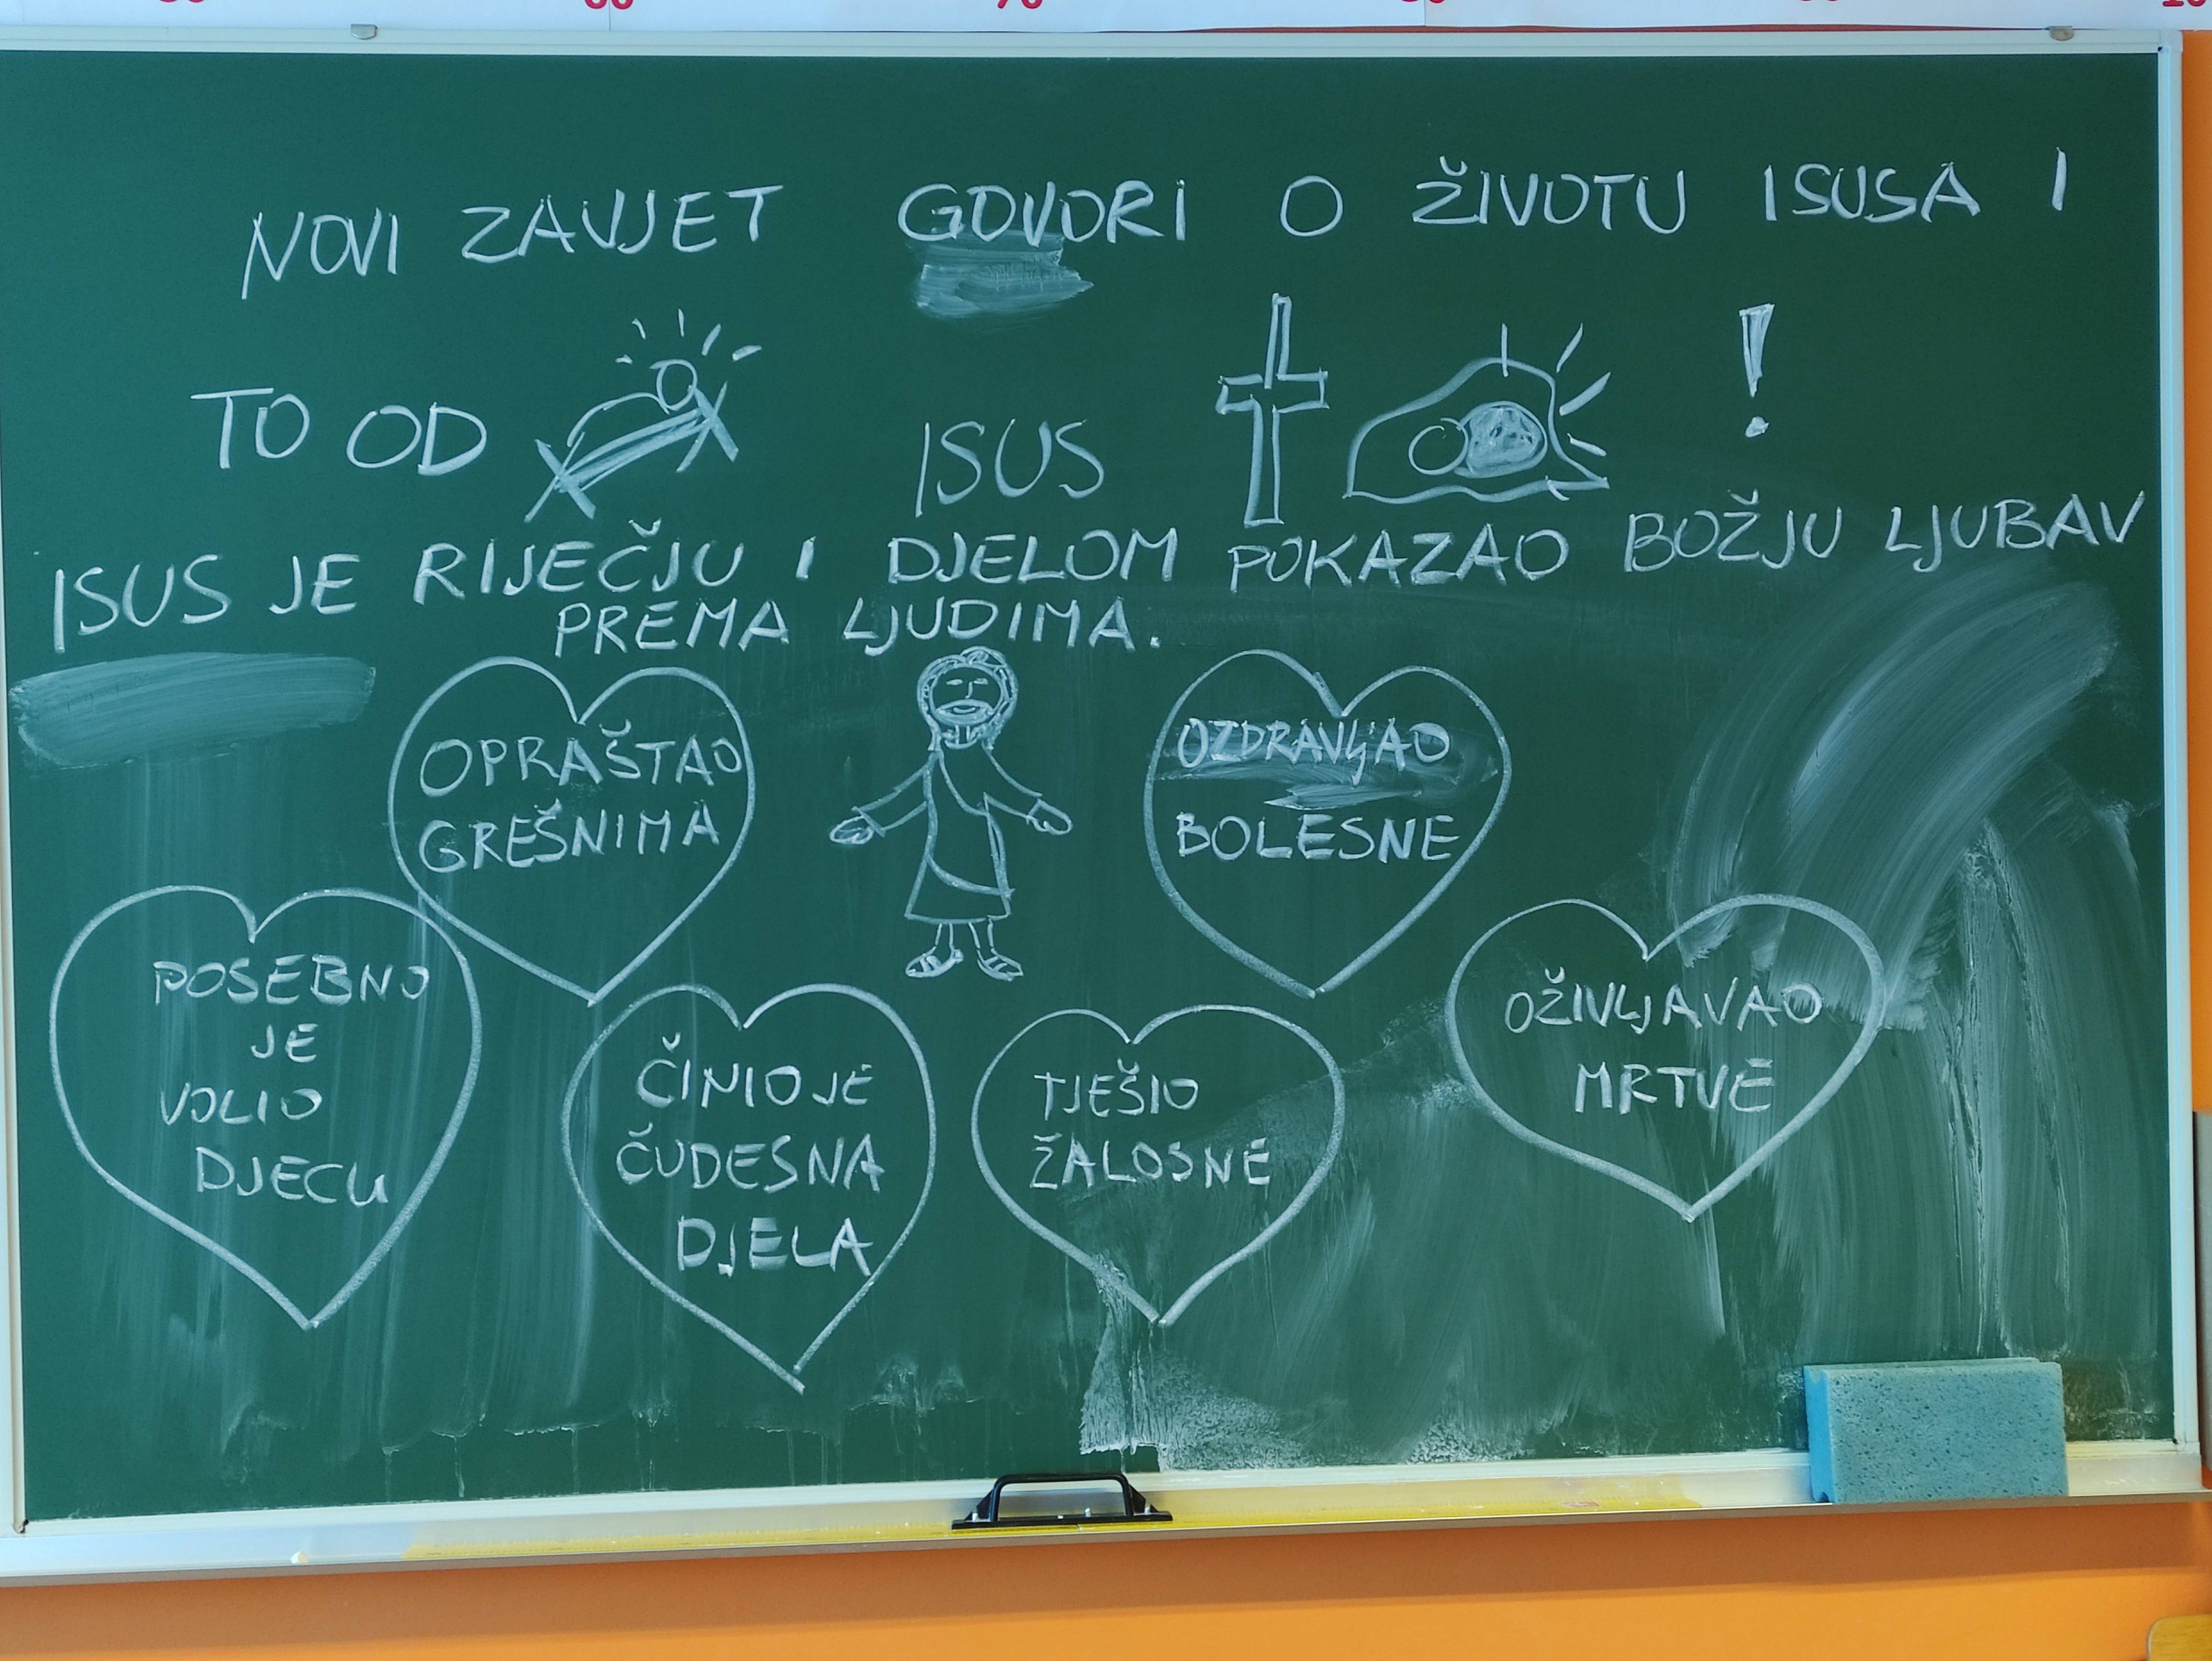 NOVI ZAVJET GOVORI O ŽIVOTU ISUSA I
TO OD ISUS !
ISUS JE RIJEČJU I DJELOM POKAZAO BOŽJU LJUBAV
PREMA LJUDIMA.
OPRAŠTAO
GREŠNIMA
OZDRAVLJAO
BOLESNE
POSEBNO
JE
VOLIO
DJECU
ČINIO JE
ČUDESNA
DJELA
TJEŠIO
ŽALOSNE
OŽIVLJAVAO
MRTVE